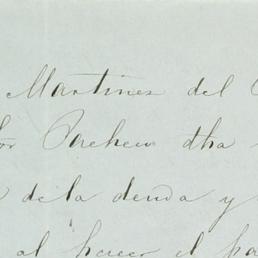 Martines del
Pacheco dha
de la deuda y
al hacer el